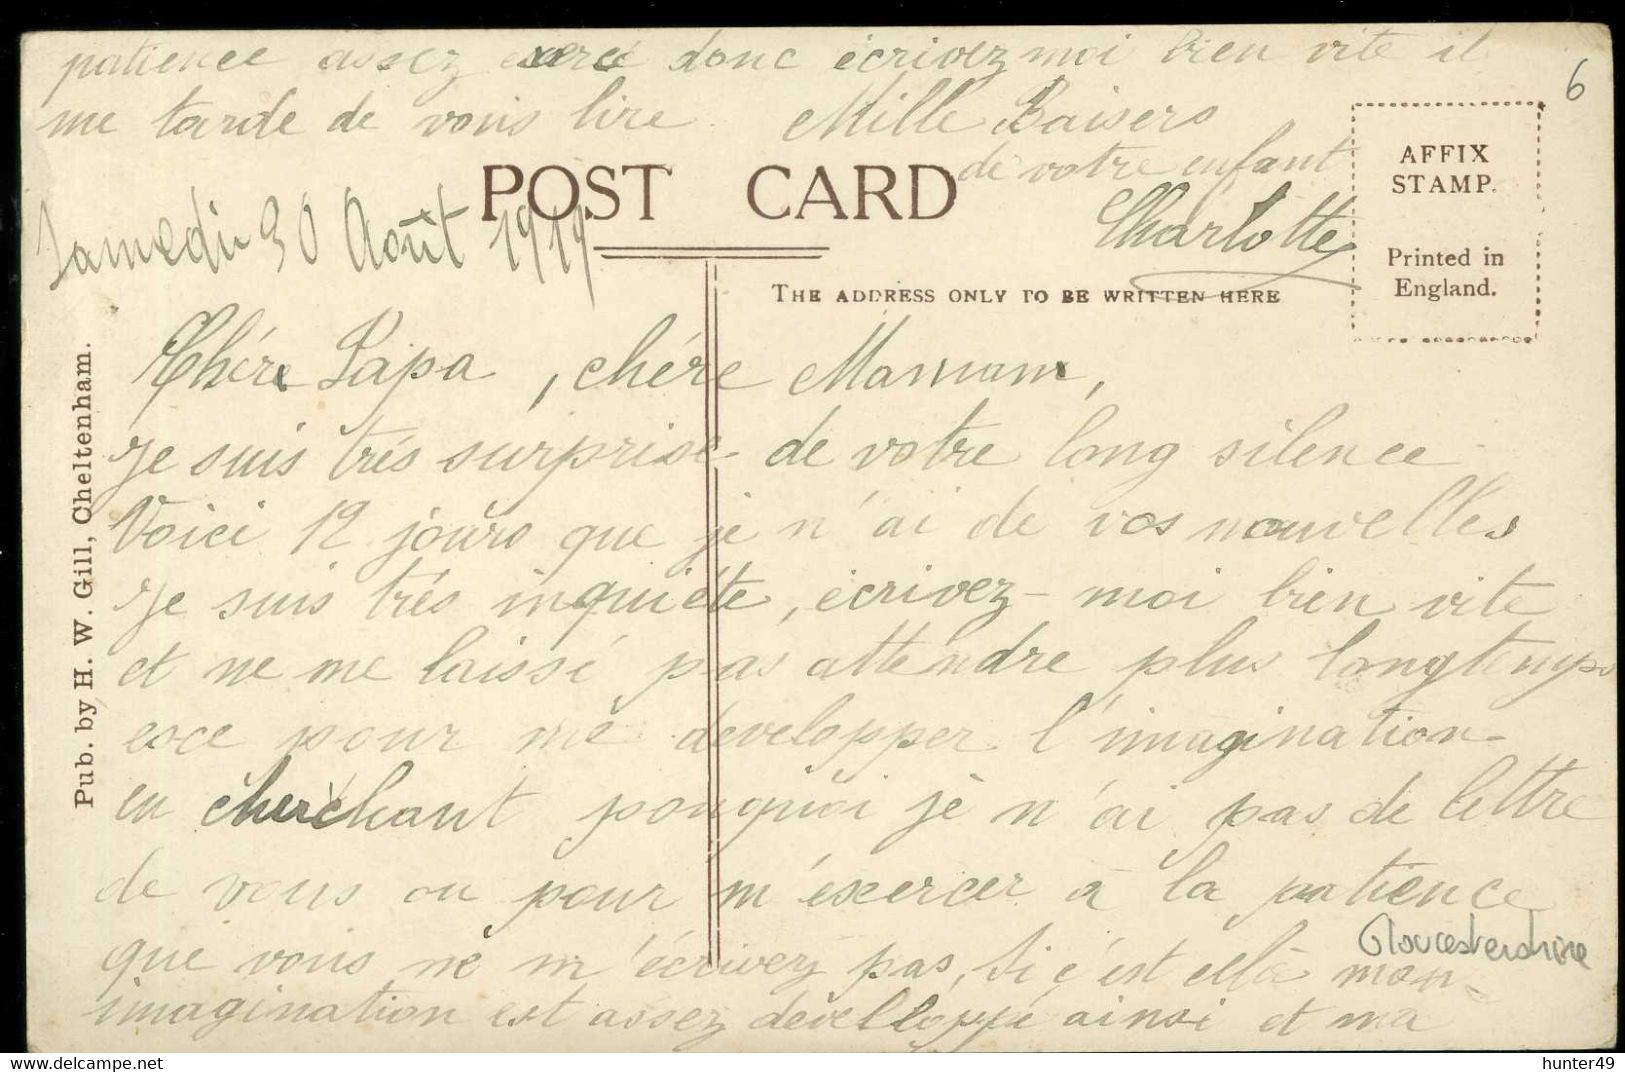 patience assez exercé donc écrivez moi bien vite il
me tarde de vous lire Mille Baisers
de votre enfant
Charlotte
6
POST CARD
AFFIX
STAMP.
Printed in
England.
Samedi 30 Août 1919
THE ADDRESS ONLY TO BE WRITTEN HERE
Pub. by H. W. Gill, Cheltenham.
Chére Papa, chére Maman,
Je suis trés surprise de votre long silence
Voici 12 jours que je n'ai de vos nouvelles
Je suis trés inquiéte, écrivez-moi bien vite
et ne me laissé pas attendre plus longtemps
esce pour me developper l'imagination
en cherchant pourquoi je n'ai pas de lettre
de vous ou pour m'éxercer à la patience
que vous ne m'écrivez pas, Si c'est cela mon
imagination est assez développé ainsi et ma
Gloucestershire
hunter49